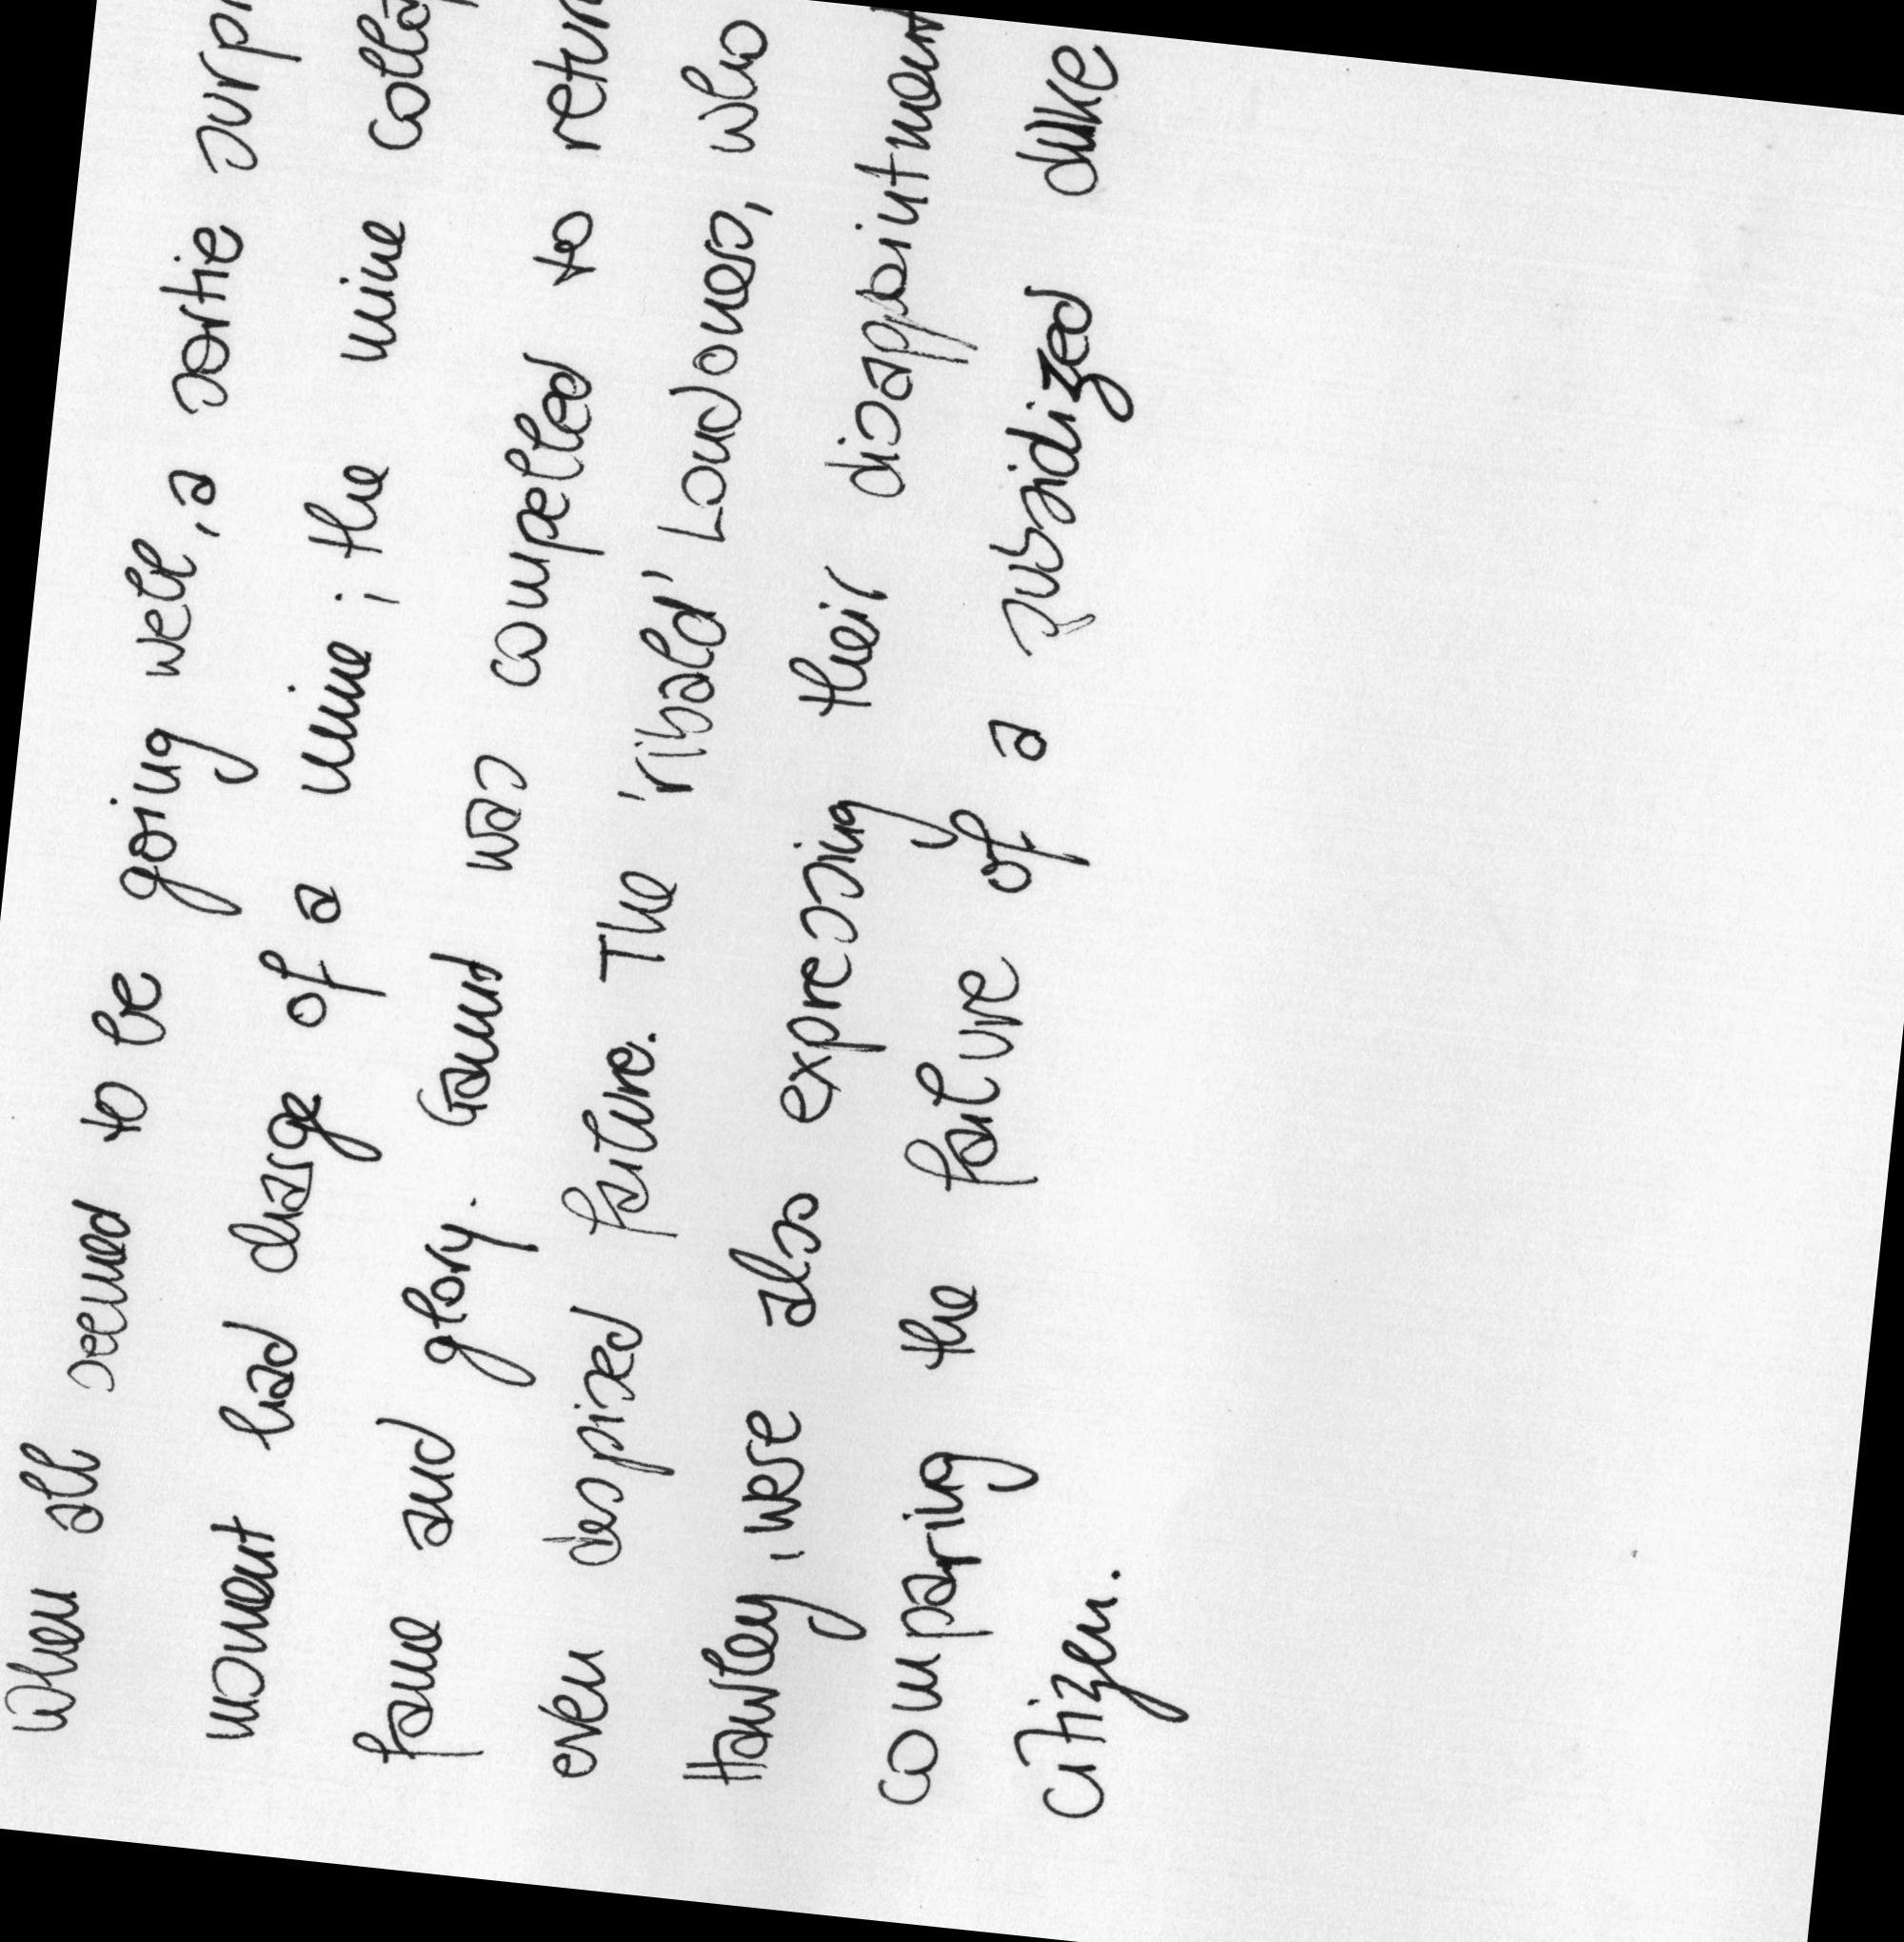 When all seemed to be going well, a sortie
moment had charge of a mine; the mine
fame and glory. Gaunt was compelled to
even despised failure. The 'ribald' Londoners, who
Hawley, were also expressing their disappointment
comparing the failure of a subsidized duke
citizen.